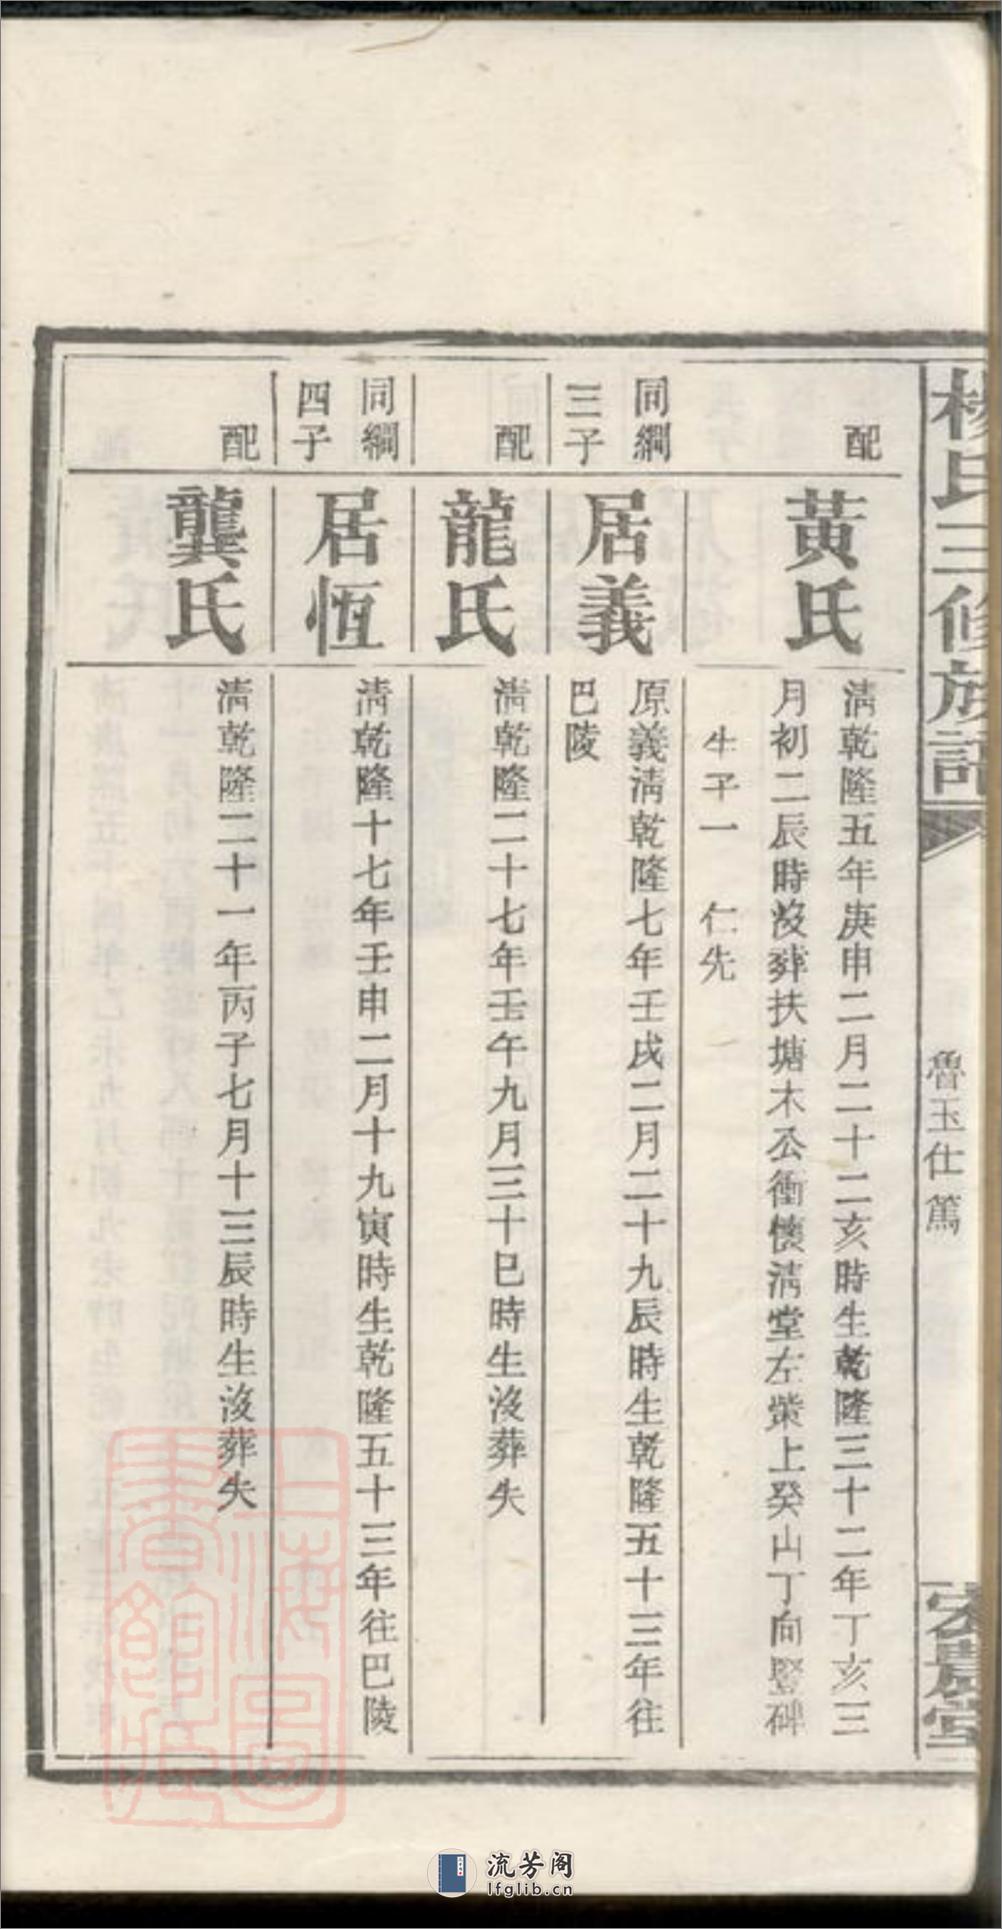 楊氏三修族譜
魯玉仕篤
宏農堂
配
黃氏
淸乾隆五年庚申二月二十二亥時生乾隆三十二年丁亥三
月初二辰時沒葬扶塘木公衝懷淸堂左塋上癸山丁向竪碑
生子一　仁先
同綱
三子
居義
原義淸乾隆七年壬戌二月二十九辰時生乾隆五十三年往
巴陵
配
龍氏
淸乾隆二十七年壬午九月三十巳時生沒葬失
同綱
四子
居恆
淸乾隆十七年壬申二月十九寅時生乾隆五十三年往巴陵
配
龔氏
淸乾隆二十一年丙子七月十三辰時生沒葬失
上海圖書館藏
流芳阁
lfglib.cn